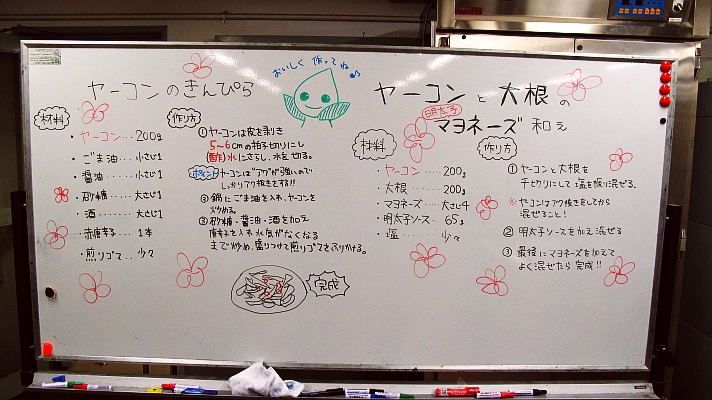 おいしく 作ってね♪
ヤーコンのきんぴら
材料
・ヤーコン‥‥200g
・ごま油‥‥小さじ1
・醤油‥‥小さじ1
・砂糖‥‥大さじ1
・酒‥‥‥大さじ1
・赤唐辛子‥‥1本
・煎りゴマ‥‥少々
作り方
①ヤーコンは皮を剥き
5~6cmの拍子切りにし
(酢)水にさらし、水を切る。
ポイント ヤーコンは"アク"が強いので
しっかりアク抜きをする!!
②鍋にごま油を入れ、ヤーコンを
炒める。
③砂糖・醤油・酒を加え
唐辛子を入れ水気がなくなる
まで炒め、盛りつけて煎りゴマをふりかける。
完成
ヤーコンと大根の
明太子
マヨネーズ和え
材料
・ヤーコン‥‥‥200g
・大根‥‥‥200g
・マヨネーズ‥‥大さじ4
・明太子ソース‥‥65g
・塩‥‥‥少々
作り方
①ヤーコンと大根を
千切りにして、塩を振り混ぜる。
※ヤーコンはアク抜きをしてから
混ぜること!
②明太子ソースを加え混ぜる
③最後にマヨネーズを加えて
よく混ぜたら完成!!